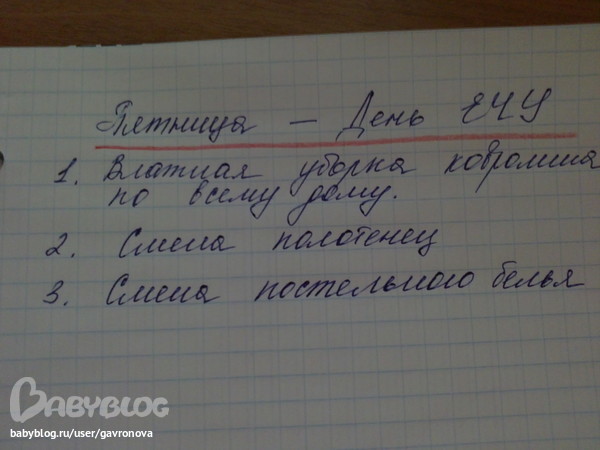 Пятница — День ЕЧУ
1. Влажная уборка ковролина
по всему дому.
2. Смена полотенец
3. Смена постельного белья
BABYBLOG
babyblog.ru/user/gavronova